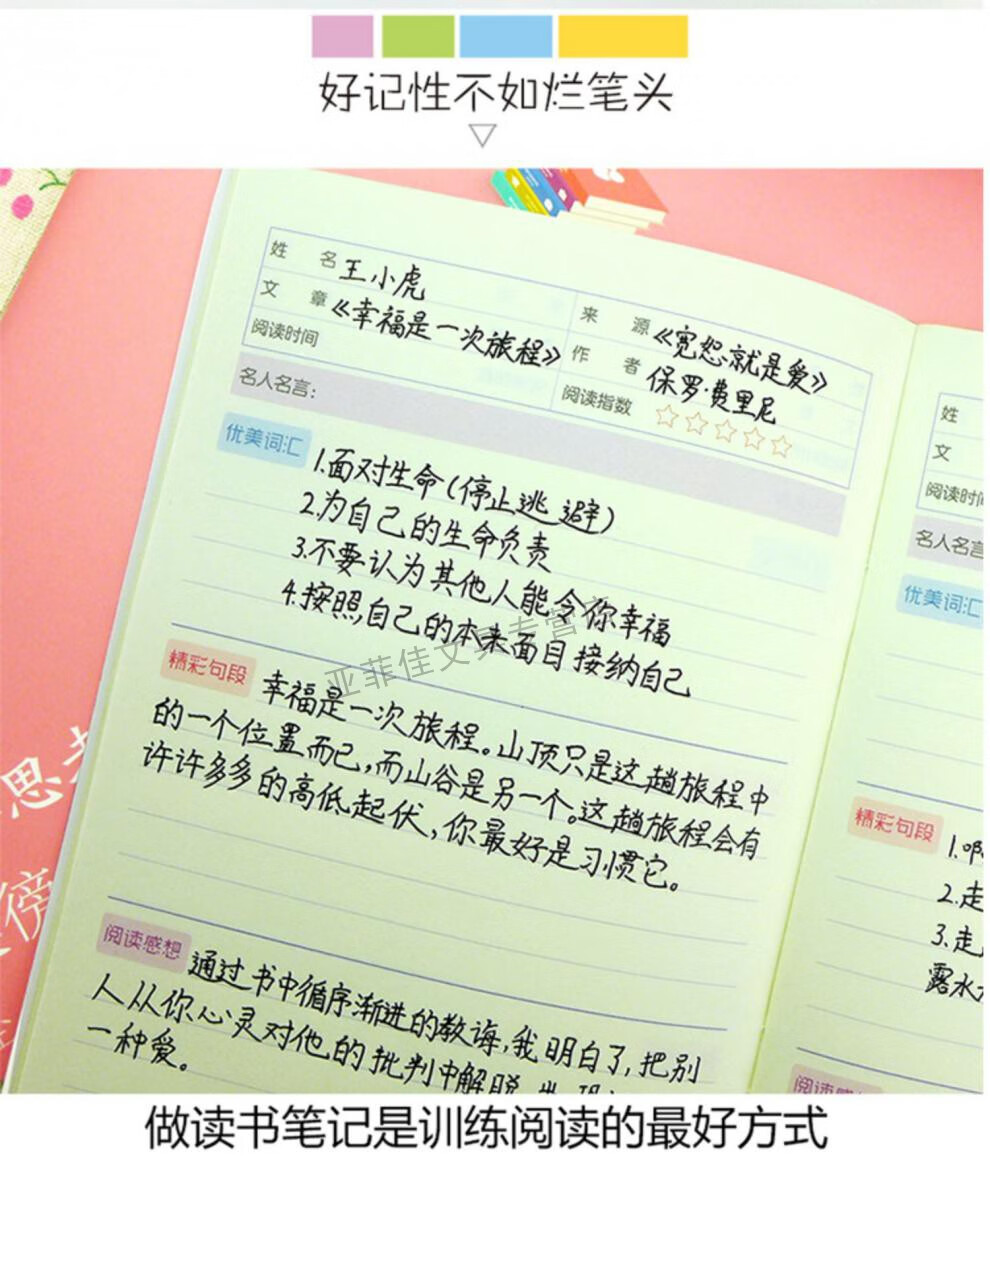 好记性不如烂笔头
姓 名 王小虎
文 章 《幸福是一次旅程》
阅读时间
来 源 《宽恕就是爱》
作 者 保罗·费里尼
阅读指数
名人名言:
优美词汇 1.面对生命(停止逃避)
2.为自己的生命负责
3.不要认为其他人能令你幸福
4.按照自己的本来面目接纳自己
亚菲佳文具专营
精彩句段 幸福是一次旅程。山顶只是这趟旅程中
的一个位置而已,而山谷是另一个。这趟旅程会有
许许多多的高低起伏,你最好是习惯它。
阅读感想 通过书中循序渐进的教诲,我明白了,把别
人从你心灵对他的批判中解脱
一种爱。
姓
文
阅读时间
名人名言
优美词汇
精彩句段 1.啊
2.走
3.走
露水
阅读感想
思考
傍
做读书笔记是训练阅读的最好方式